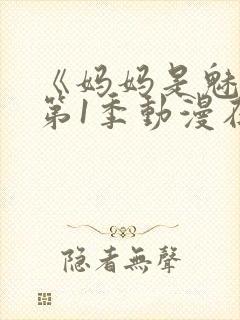 《妈妈是魅
第1季動漫在
隐者無聲